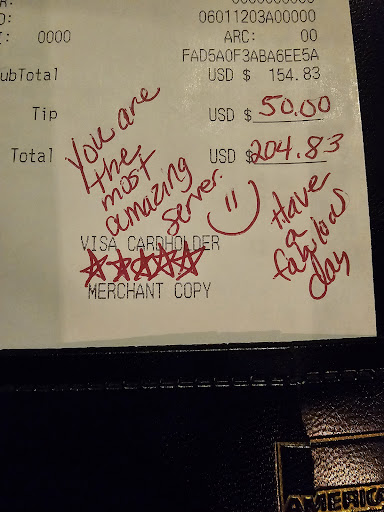 06011203A00000
0000
ARC: 00
FAD5A0F3ABA6EE5A
ubTotal USD $ 154.83
Tip USD $ 50.00
Total USD $ 204.83
You are
the
most
amazing
server.
Have
a
fabulous
day
VISA CARDHOLDER
MERCHANT COPY
AMERICA